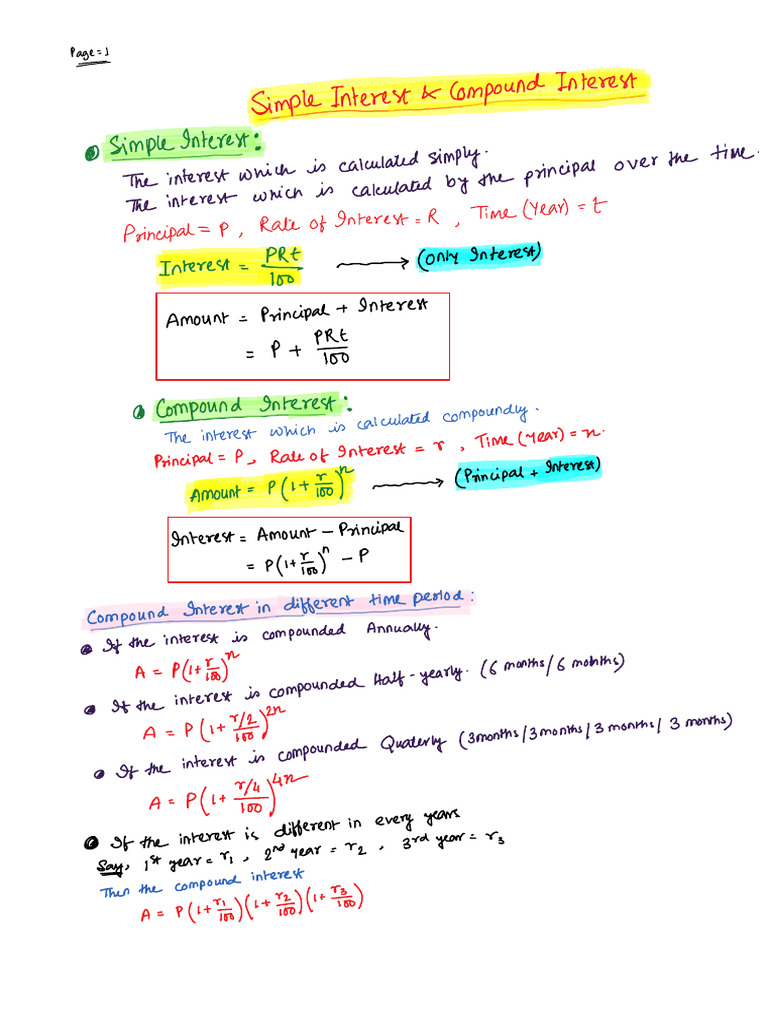 Page = 1
Simple Interest & Compound Interest
Simple Interest:
The interest which is calculated simply.
The interest which is calculated by the principal over the time.
Principal = P, Rate of Interest = R, Time (Year) = t
Interest = PRt/100 → (Only Interest)
Amount = Principal + Interest
= P + PRt/100
Compound Interest:
The interest which is calculated compoundly.
Principal = P, Rate of Interest = r, Time (Year) = n.
Amount = P(1 + r/100)^n → (Principal + Interest)
Interest = Amount − Principal
= P(1 + r/100)^n − P
Compound Interest in different time period:
If the interest is compounded Annually.
A = P(1 + r/100)^n
If the interest is compounded Half-yearly. (6 months/6 months)
A = P(1 + r/2/100)^2n
If the interest is compounded Quaterly (3months/3months/3months/3months)
A = P(1 + r/4/100)^4n
If the interest is different in every years
Say, 1st year = r₁, 2nd year = r₂, 3rd year = r₃
Then the compound interest
A = P(1 + r₁/100)(1 + r₂/100)(1 + r₃/100)